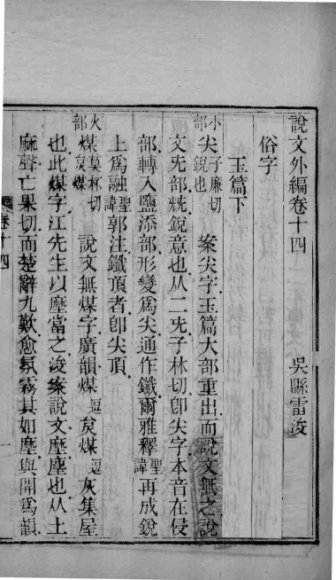 說文外編卷十四
吳縣雷浚
俗字
玉篇下
小部 尖 子廉切 銳也 案尖字玉篇大部重出而說文無之說
文兂部兓銳意也从二兂子林切卽尖字本音在侵
部轉入鹽添部形變爲尖通作鑯爾雅釋 聖諱 再成銳
上爲融 聖諱 郭注鑯頂者卽尖頂
火部 煤 莫杯切 炱煤 說文無煤字廣韻煤 逗 炱煤 逗 灰集屋
也此煤字江先生以塺當之浚案說文塺塵也从土
麻聲亡果切而楚辭九歎愈氛霧其如塺與開爲韻
卷十四